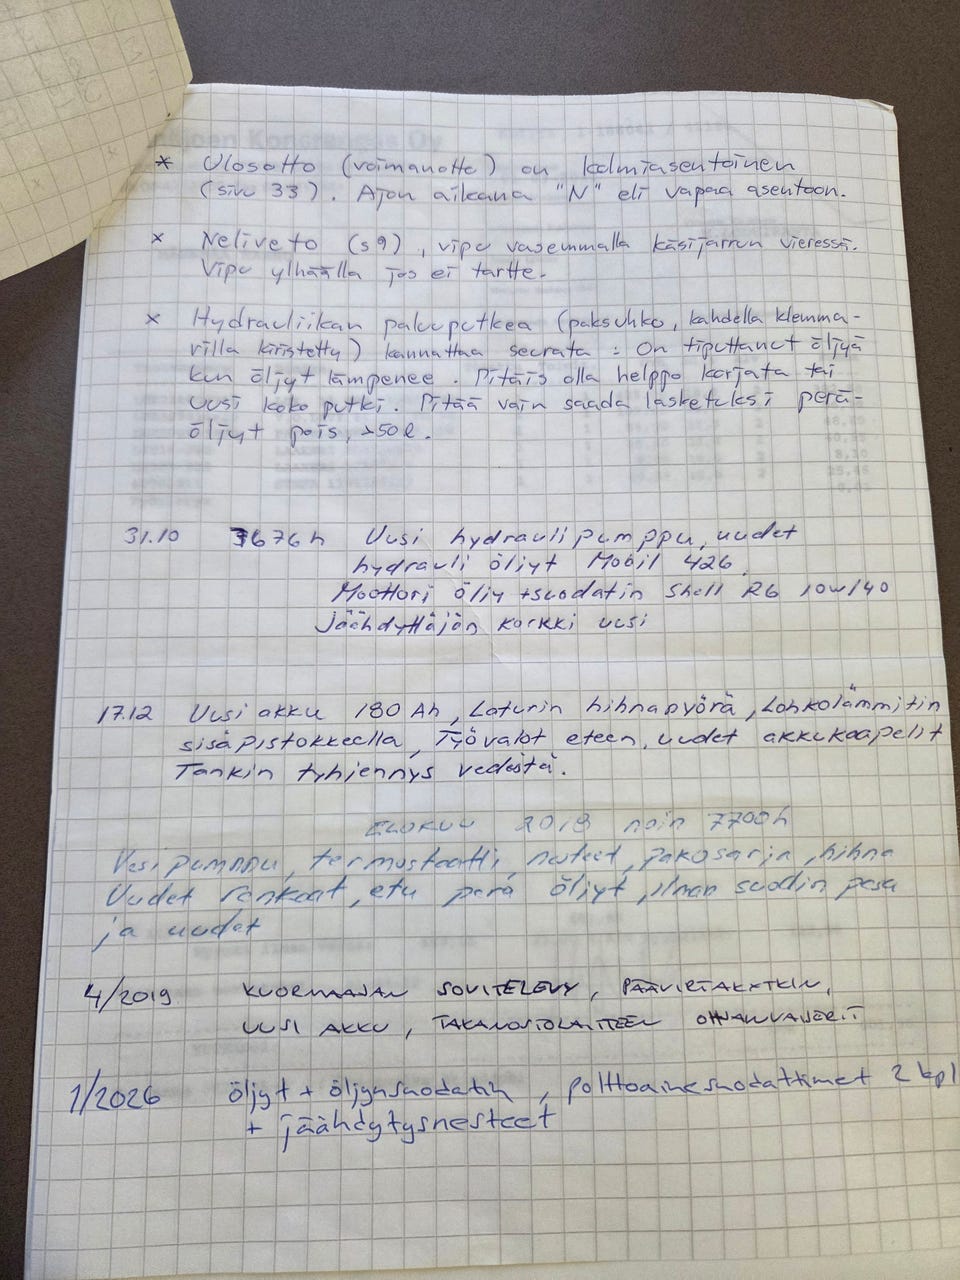 * Ulosotto (voimanotto) on kolmiasentoinen
(sivu 33). Ajon aikana "N" eli vapaa asentoon.
* Neliveto (s9), vipu vasemmalla käsijarrun vieressä.
Vipu ylhäällä jos ei tartte.
* Hydrauliikan paluuputkea (paksuhko, kahdella klemma-
rilla kiristetty) kannattaa seurata : On tiputtanut öljyä
kun öljyt lämpenee. Pitäis olla helppo korjata tai
uusi koko putki. Pitää vain saada lasketuksi perä-
öljyt pois, >50l.
31.10 7676h Uusi hydraulipumppu, uudet
hydrauli öljyt Mobil 426.
Moottori öljy +suodatin Shell R6 10w/40
Jäähdyttäjän korkki uusi
17.12 Uusi akku 180 Ah, Laturin hihnapyörä, Lohkolämmitin
sisäpistokkeella, Työvalot eteen, uudet akkukaapelit
Tankin tyhjennys vedestä.
Elokuu 2018 noin 7700h
Vesipumppu, termostaatti, nesteet, pakosarja, hihna
Uudet renkaat, etu perä öljyt, ilman suodin pesu
ja uudet
4/2019 KUORMAAJAN SOVITELEVY, PÄÄVIRTAKYTKIN,
UUSI AKKU, TAKANOSTOLAITTEEN OHJAUVAIJERIT
1/2026 öljyt + öljynsuodatin, polttoainesuodattimet 2 kpl
+ jäähdytysnesteet